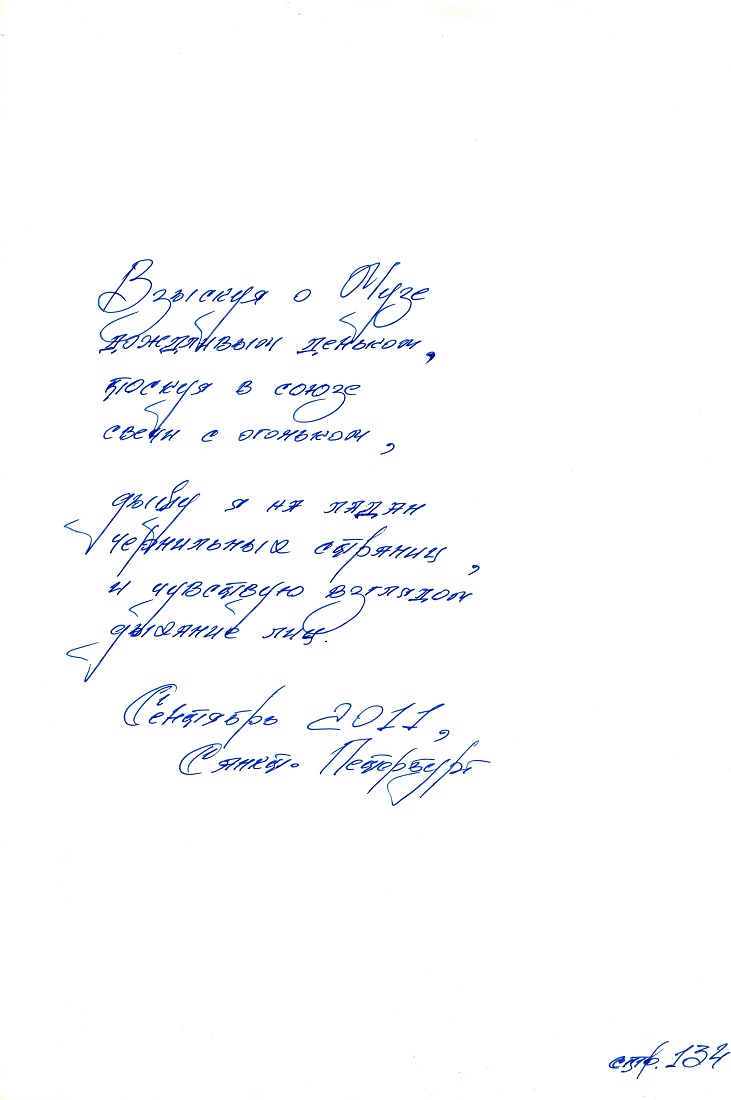 Взыскуя о Музе
дождливым деньком,
тоскуя в союзе
свечи с огоньком,
дышу я на ладан
чернильных страниц,
и чувствую взглядом
дыхание лиц.
Сентябрь 2011,
Санкт-Петербург
стр. 134